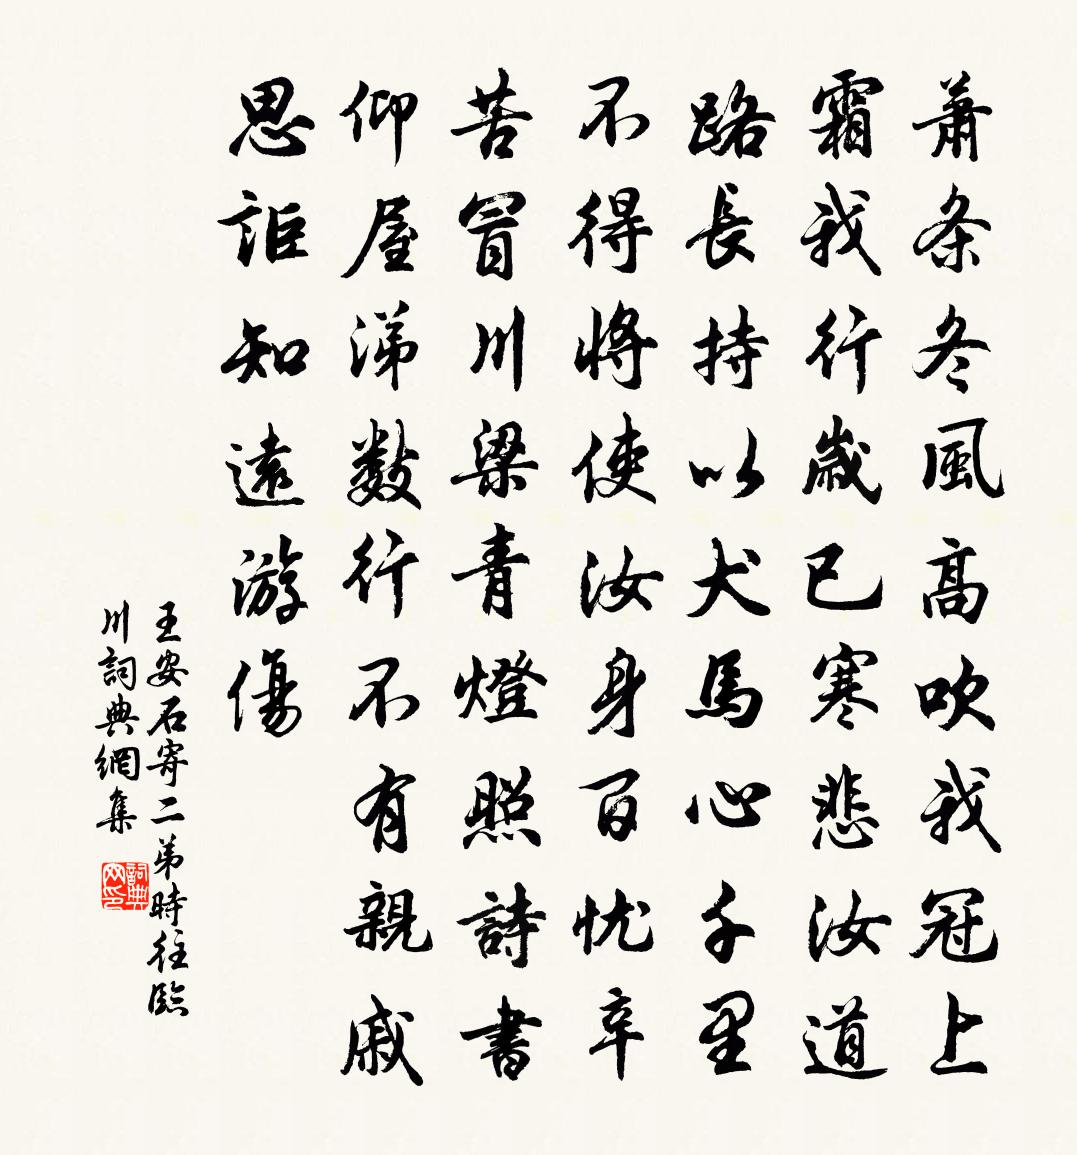 萧条冬風高吹我冠上
霜我行歳已寒悲汝道
路長持以犬馬心千里
不得將使汝身百忧辛
苦冒川梁青燈照詩書
仰屋涕数行不有親戚
思詎知遠游傷
王安石寄二弟時往臨
川詞典網集
詞典
网印